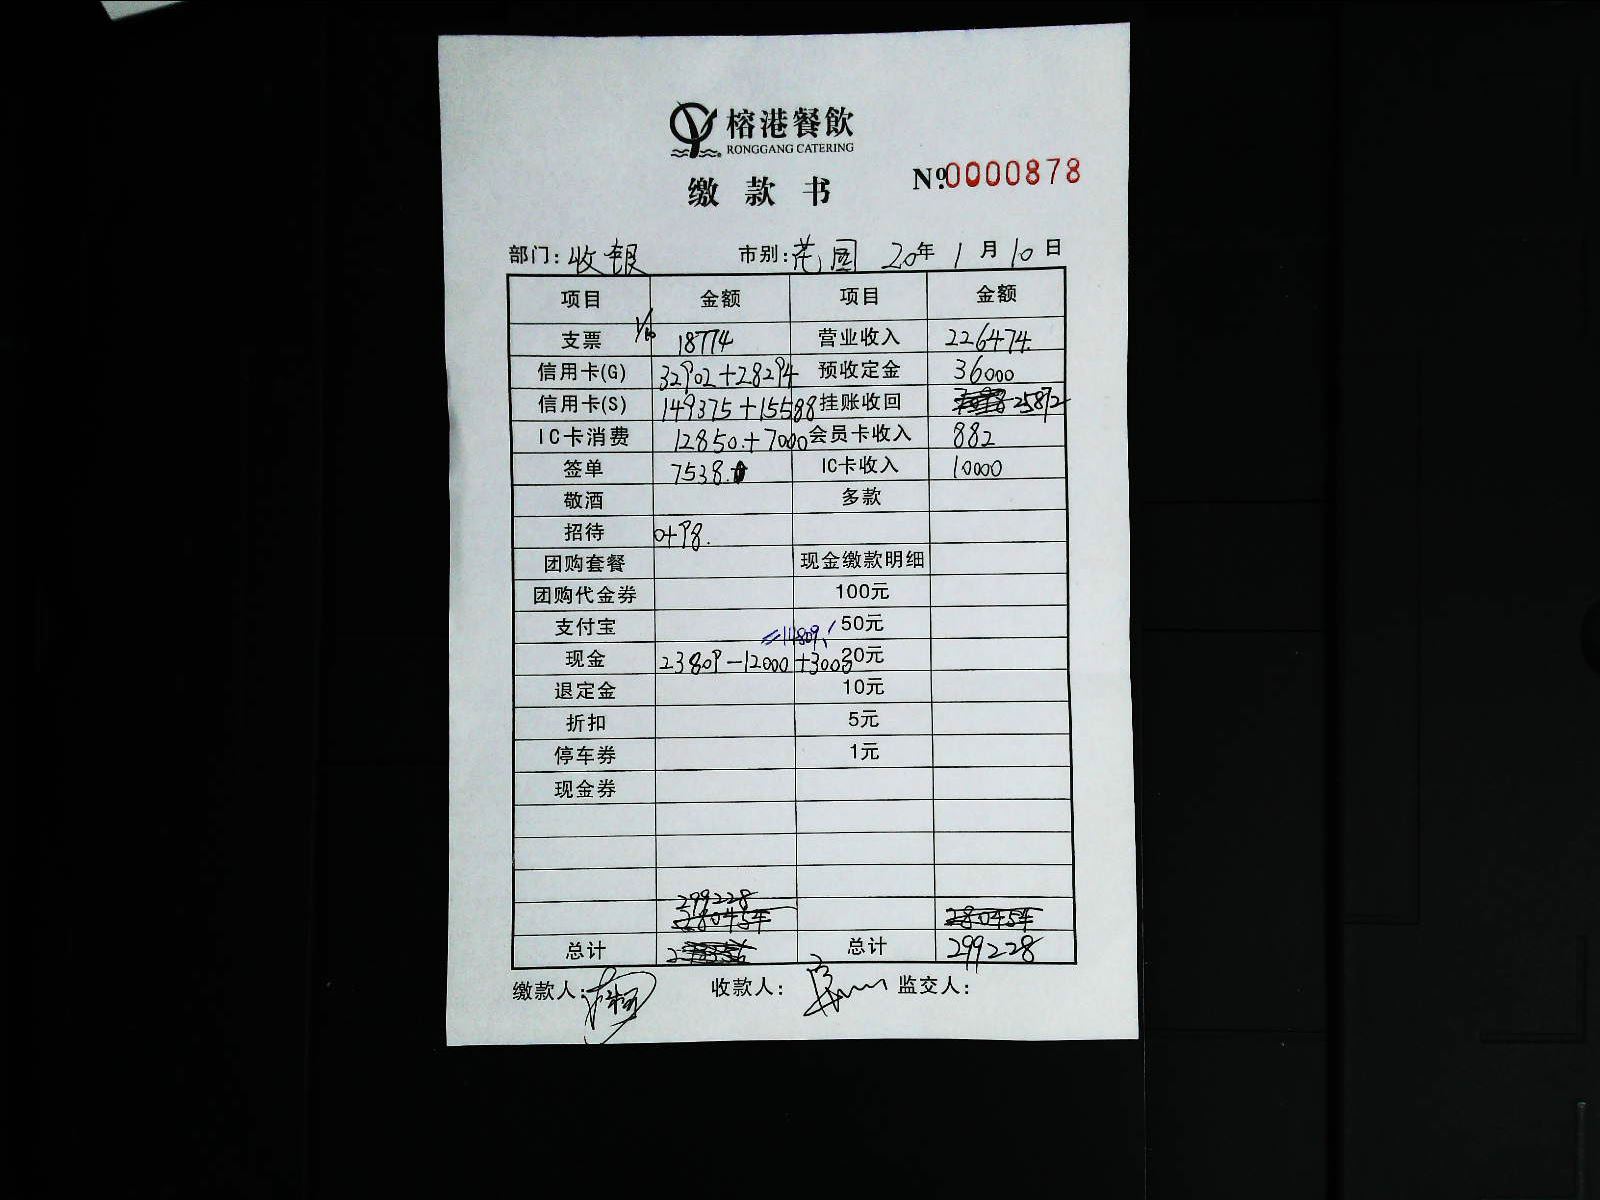 榕港餐飲
RONGGANG CATERING
缴款书 №0000878
部门: 收银 市别: 花园 20年 1月 10日
项目 金额 项目 金额
支票 1/10 18774 营业收入 226474.
信用卡(G) 32902+28294 预收定金 36000
信用卡(S) 149375+15588 挂账收回 25872
IC卡消费 12850.+7000 会员卡收入 882
签单 7538. IC卡收入 10000
敬酒 多款
招待 0+98.
团购套餐 现金缴款明细
团购代金券 100元
支付宝 =14809. 50元
现金 23809-12000+3000 20元
退定金 10元
折扣 5元
停车券 1元
现金券
299228
280454 280454
总计 总计 299228
缴款人: 收款人: 监交人: